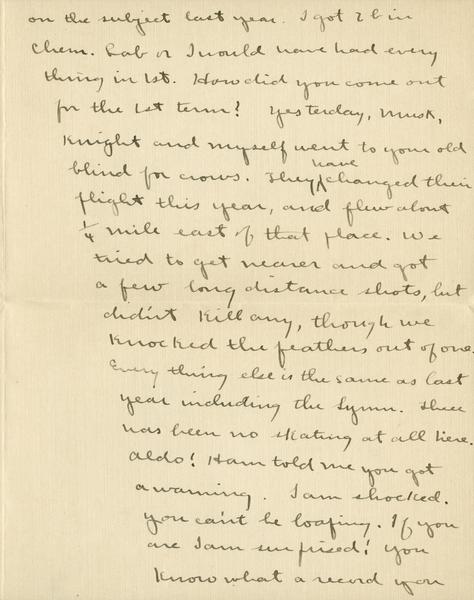 on the subject last year. I got 2 b in
Chem. Lab or I would have had every
thing in 1st. How did you come out
for the 1st term? Yesterday, Musk,
Knight and myself went to your old
blind for crows. They have changed their
flight this year, and flew about
1/4 mile east of that place. We
tried to get nearer and got
a few long distance shots, but
didn't kill any, though we
knocked the feathers out of one.
Every thing else is the same as last
year including the Gymn. There
has been no skating at all here.
Aldo! Ham told me you got
a warning. I am shocked.
You can't be loafing. If you
are I am surprised! You
know what a record you